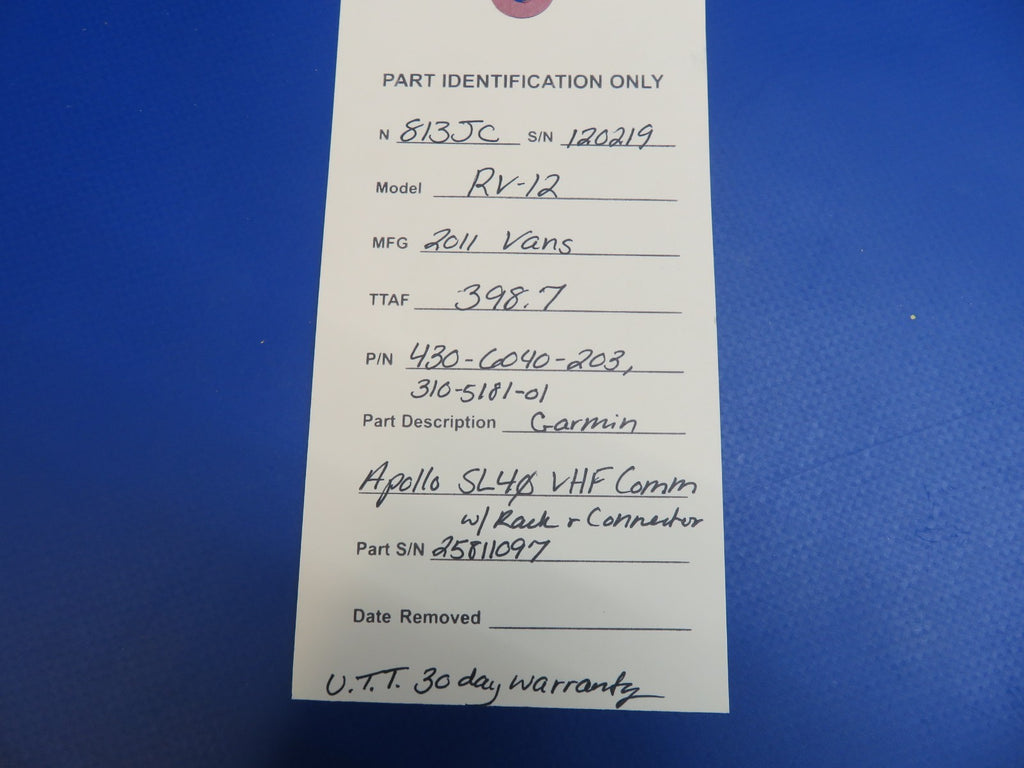 PART IDENTIFICATION ONLY
N 813JC S/N 120219
Model RV-12
MFG 2011 Vans
TTAF 398.7
P/N 430-6040-203,
310-5181-01
Part Description Garmin
Apollo SL40 VHF Comm
w/ Rack & Connector
Part S/N 25811097
Date Removed
U.T.T. 30 day warranty